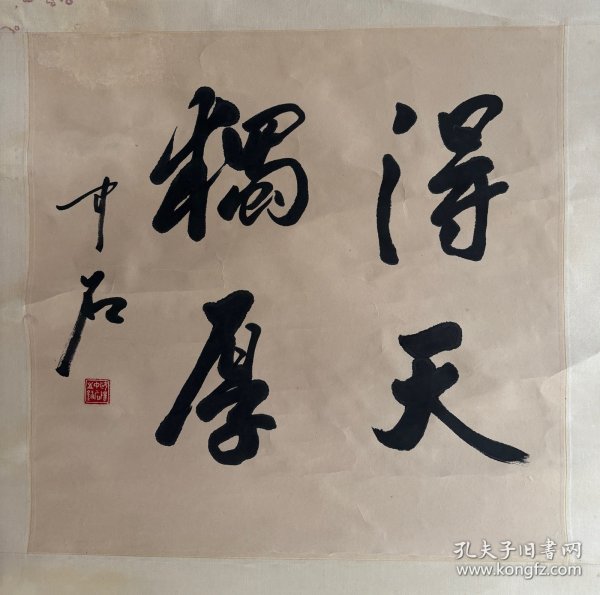 得天
獨厚
中石
孔夫子旧書网
www.kongfz.com